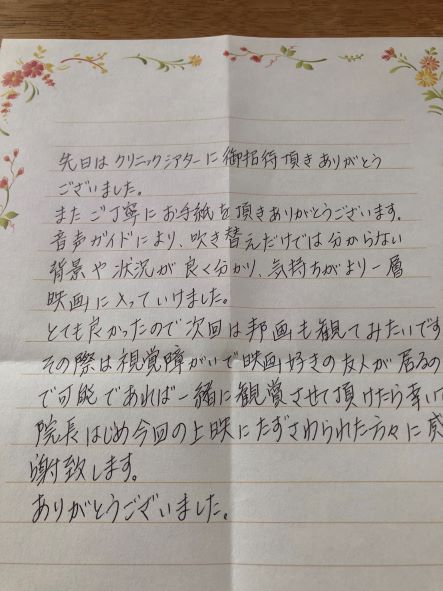 先日はクリニックシアターに御招待頂きありがとう
ございました。
またご丁寧にお手紙を頂きありがとうございます。
音声ガイドにより、吹き替えだけでは分からない
背景や状況が良く分かり、気持ちがより一層
映画に入っていけました。
とても良かったので次回は邦画も観てみたいです
その際は視覚障がいで映画好きの友人が居るの
で可能であれば一緒に観賞させて頂けたら幸いで
院長はじめ今回の上映にたずさわられた方々に感
謝致します。
ありがとうございました。